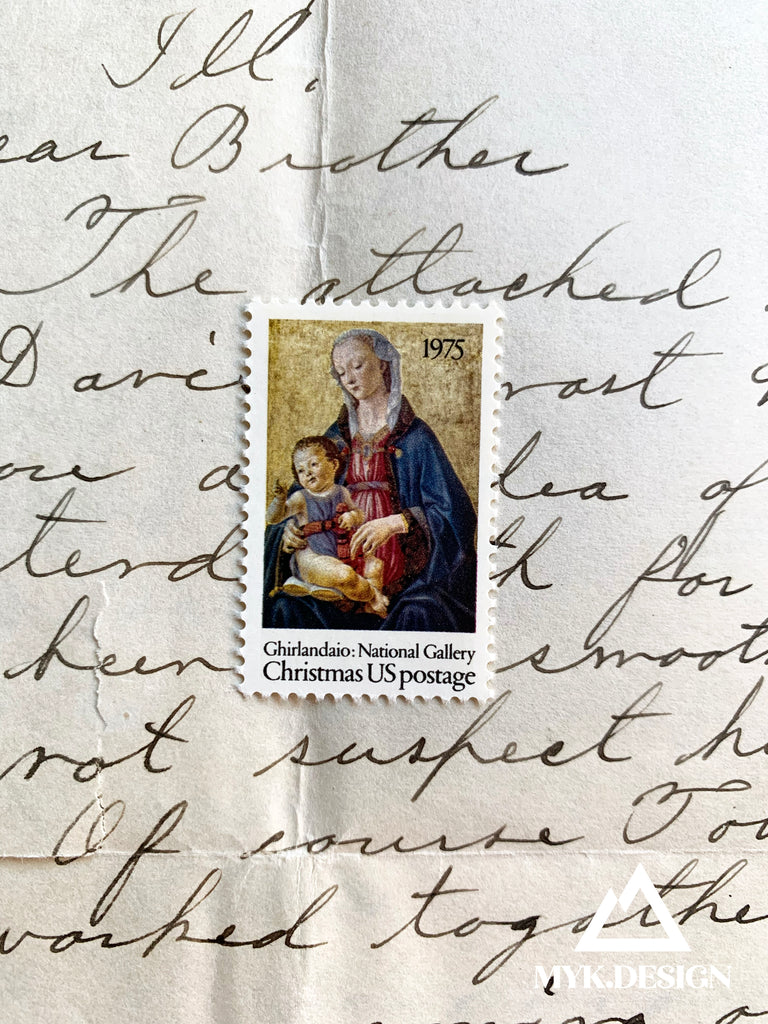 Ill.
ear Brother
The attached
Davi
rast
ou a
dea of
tend
th for
been
smooth
not suspect ha
Of course To
worked togethe
1975
Ghirlandaio: National Gallery
Christmas US postage
MYK.DESIGN